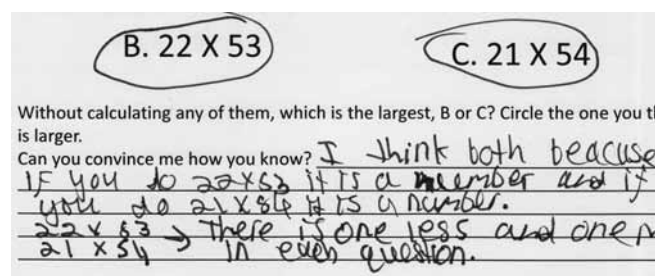 B. 22 X 53 C. 21 X 54
Without calculating any of them, which is the largest, B or C? Circle the one you
is larger.
Can you convince me how you know? I think both beacuse
IF you do 22x53 it is a number and if
you do 21x54 it is a number.
22 x 53 There is one less and one
21 x 54 in each question.